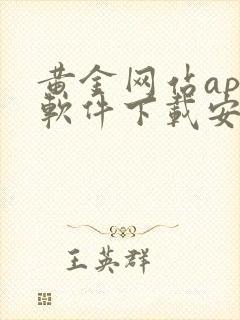 黄金网佔ap
軟件下載安
王英群